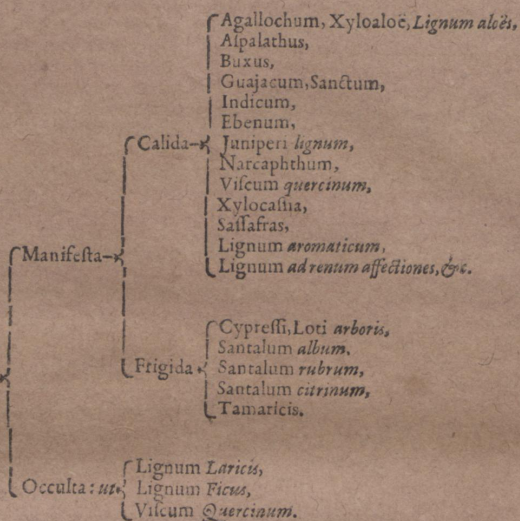 Agallochum, Xyloaloë, Lignum aloës,
Aſpalathus,
Buxus,
Guajacum, Sanctum,
Indicum,
Ebenum,
Calida
Juniperi lignum,
Narcaphthum,
Viſcum quercinum,
Xylocaſſia,
Saſſafras,
Lignum aromaticum,
Manifeſta
Lignum ad renum affectiones, &c.
Cypreſſi, Loti arboris,
Santalum album,
Frigida
Santalum rubrum,
Santalum citrinum,
Tamaricis.
Occulta : ut
Lignum Laricis,
Lignum Ficus,
Viſcum Quercinum.